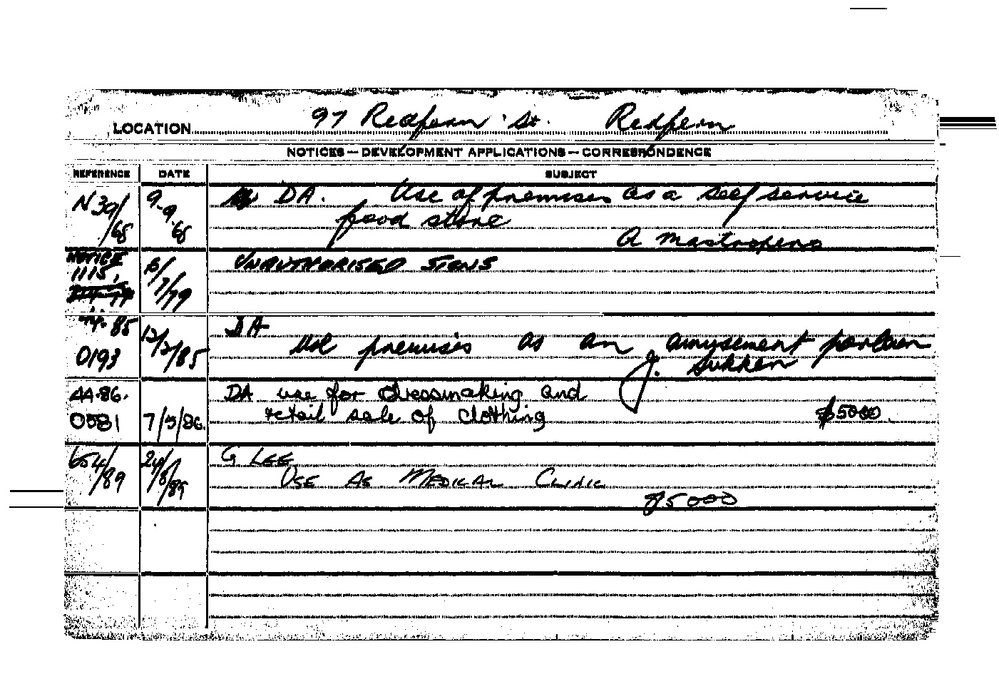 LOCATION 97 Redfern St. Redfern
NOTICES — DEVELOPMENT APPLICATIONS — CORRESPONDENCE
REFERENCE DATE SUBJECT
N 39/68 9.9.68 DA. Use of premises as a self service
food store
A Mastropeno
NOTICE 1115, /7/79 UNAUTHORISED SIGNS
85 0193 12/2/85 DA
Use premises as an amusement parlour
J.
44.86. 0581 7/5/86. DA use for dressmaking and
retail sale of clothing $5000.
654/89 24/8/89 G LEE
USE AS MEDICAL CLINIC
$5000